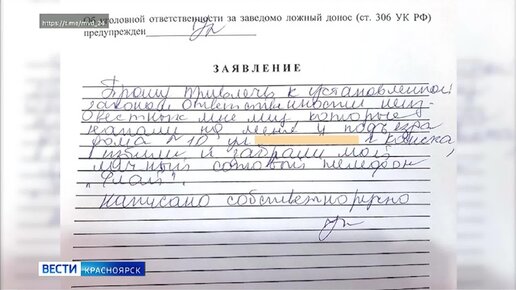 https://t.me/mvd_24
Об уголовной ответственности за заведомо ложный донос (ст. 306 УК РФ)
предупрежден
ЗАЯВЛЕНИЕ
Прошу привлечь к установленной
законом ответственности неиз-
вестных мне лиц которые
напали на меня у подъезда
дома № 10 ул. г. К
и забрали мой
личный сотовый телефон
написано собственноручно
ВЕСТИ КРАСНОЯРСК